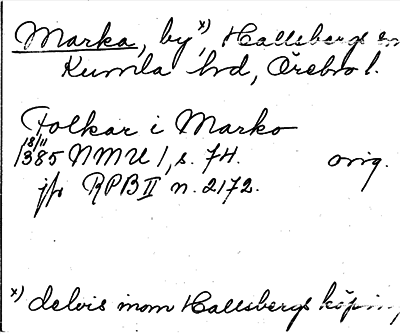 Marka, by x), Hallsbergs sn
Kumla hd, Örebro l.
Folkar i Marko
18/11
1385 NMU 1, s. 74. orig.
jfr RPB II n. 2172.
x) delvis inom Hallsbergs köpin